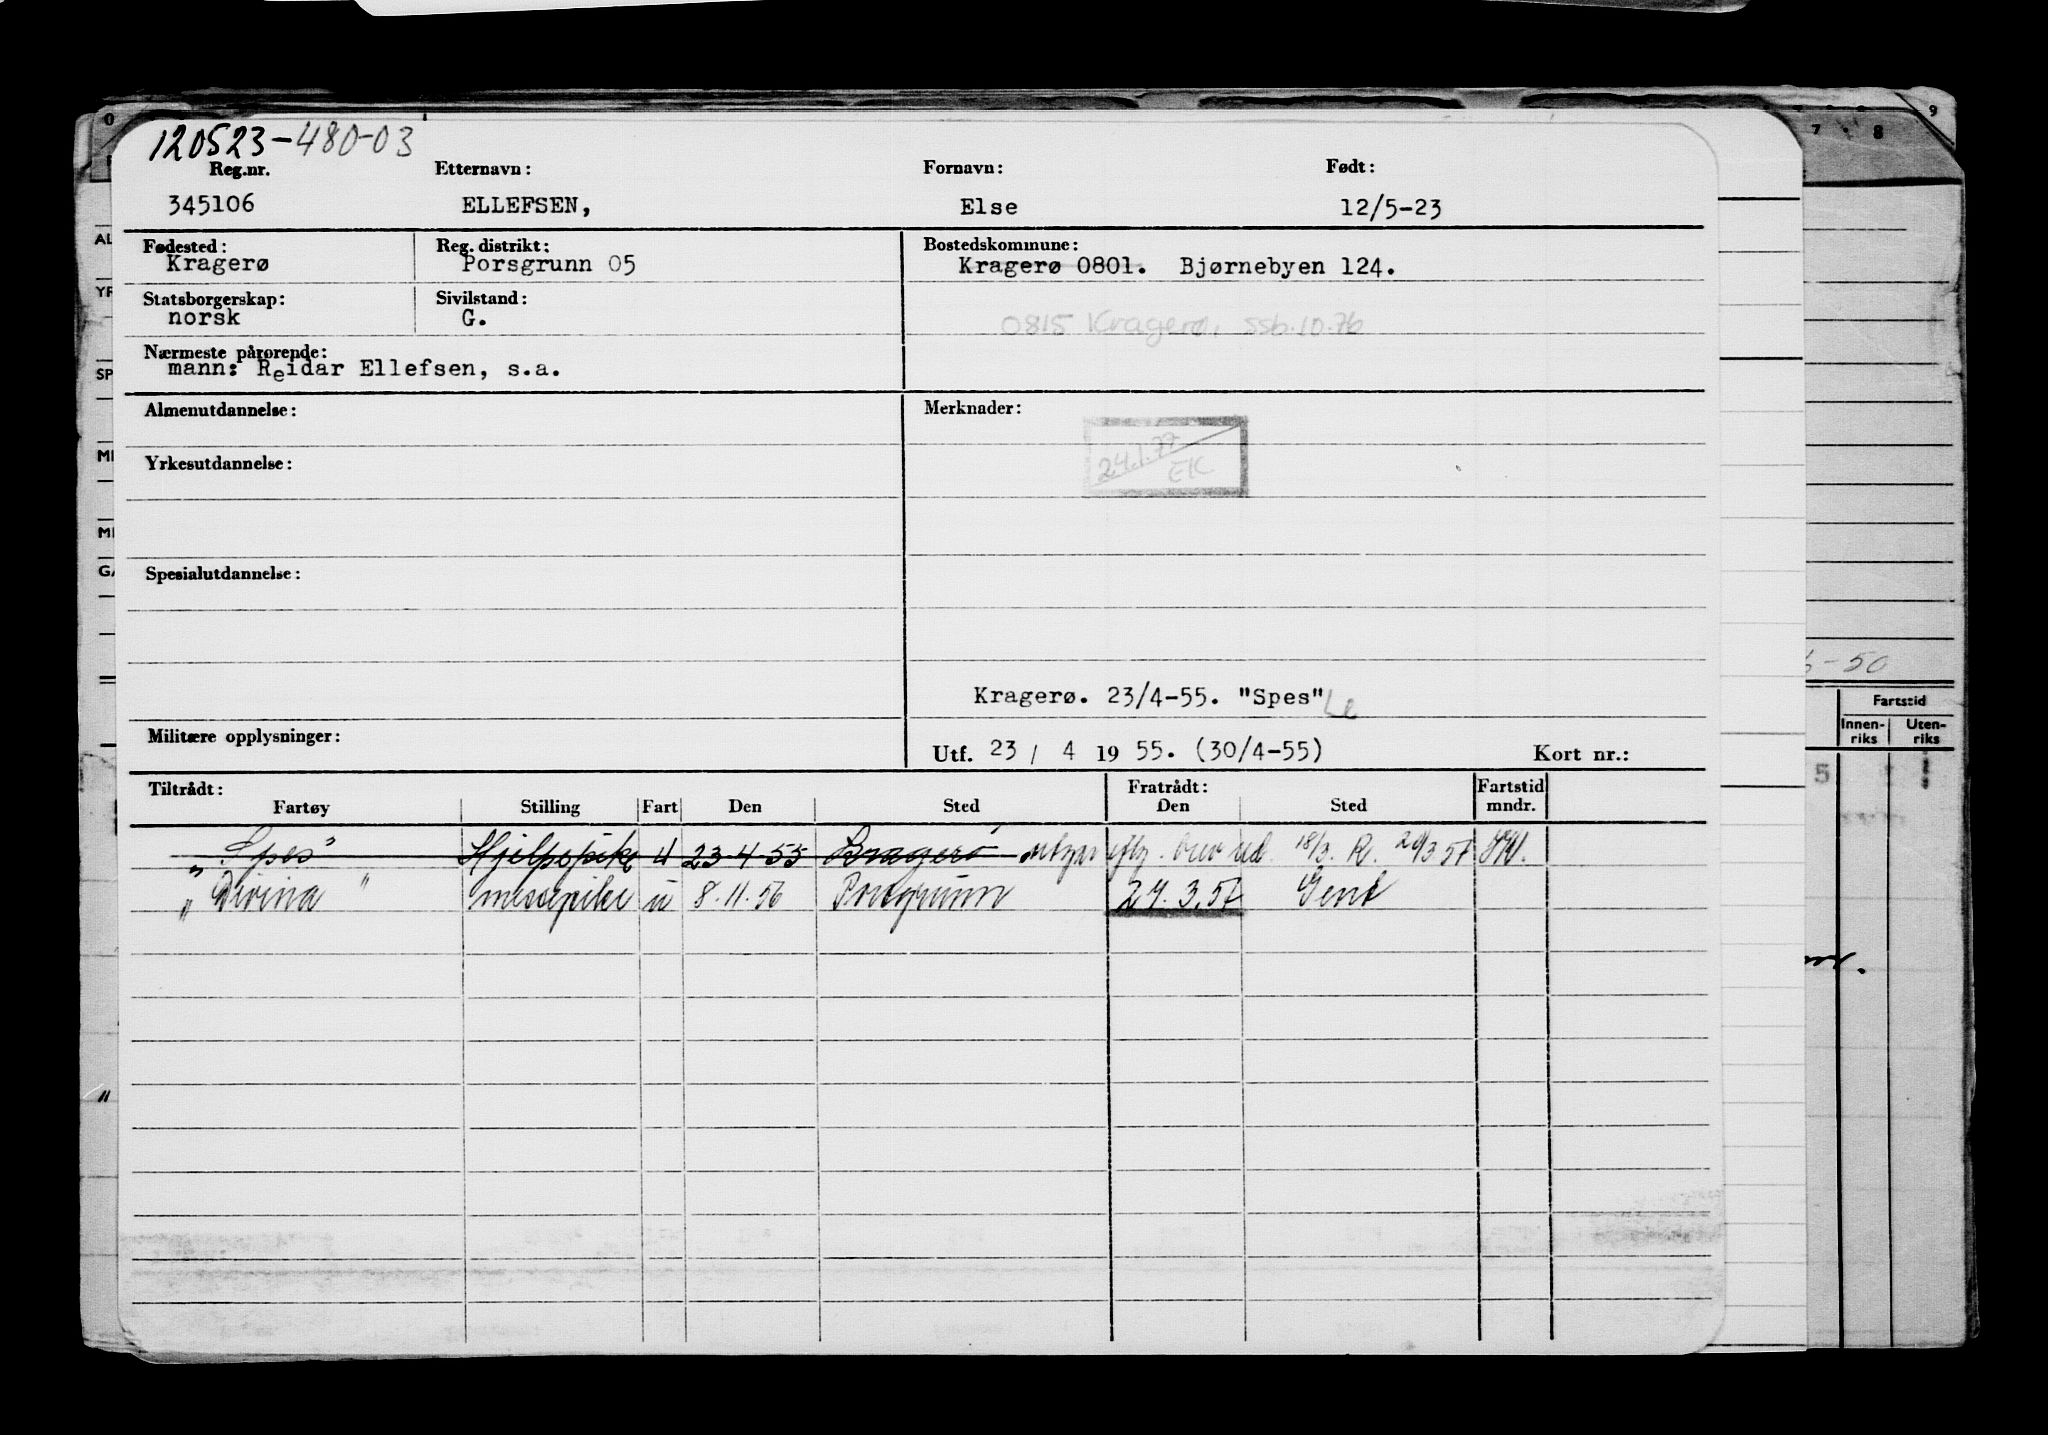 120523-480-03
Reg.nr. Etternavn: Fornavn: Født:
345106 ELLEFSEN, Else 12/5-23
Fødested: Reg. distrikt: Bostedskommune:
Kragerø Porsgrunn 05 Kragerø 0801. Bjørnebyen 124.
Statsborgerskap: Sivilstand:
norsk G. 0815 Kragerø, ssb.10.76
Nærmeste pårørende:
mann: Reidar Ellefsen, s.a.
Almenutdannelse: Merknader:
24.1.77
EK
Yrkesutdannelse:
Spesialutdannelse:
Kragerø. 23/4-55. "Spes"
Militære opplysninger: Utf. 23 / 4 19 55. (30/4-55) Kort nr.:
Tiltrådt: Fratrådt: Fartstid
Fartøy Stilling Fart Den Sted Den Sted mndr.
"Spes" Hjelpepike u 23-4-55 Kragerø utgår iflg. brev ad. 18/3. R. 29/3 57
"Divina" messepike u 8.11.56 Porsgrunn 27.3.57 Gent
6-50
Fartstid
Innen-riks Uten-riks